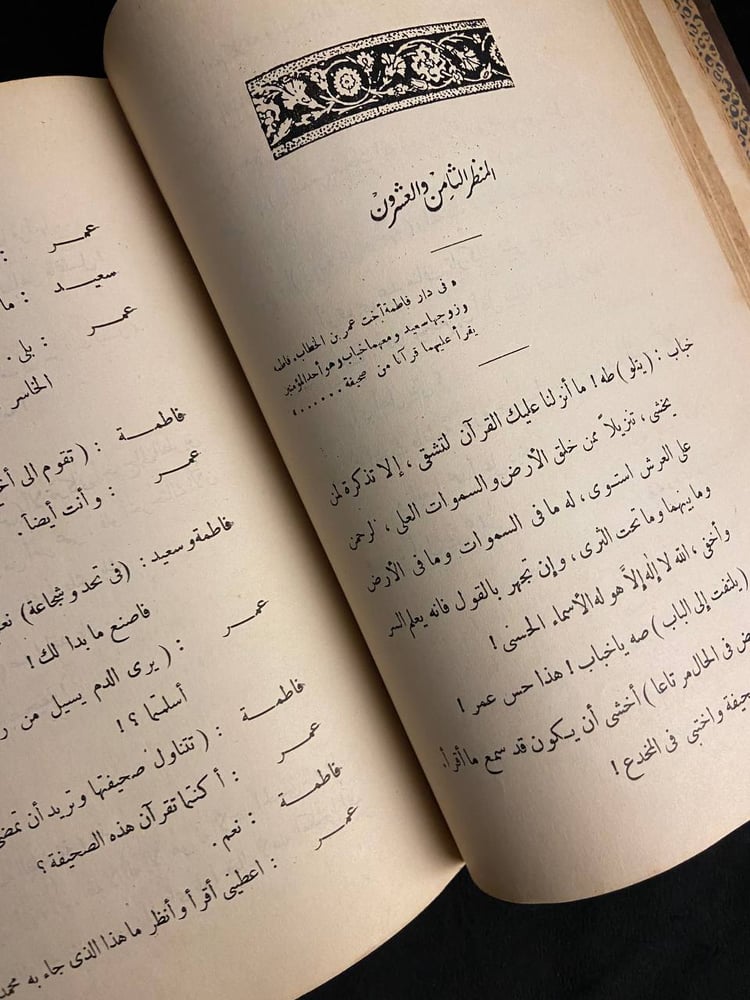 المنظر الثامن والعشرون
« فى دار فاطمة أخت عمر بن الخطاب، فاطمة
وزوجها سعيد ومعهما خباب وهو أحد المؤمنين
يقرأ عليهما قرآنا من صحيفة ......
خباب : (يتلو) طه ! ما أنزلنا عليك القرآن لتشقى ، إلا تذكرة لمن
يخشى ، تنزيلاً ممن خلق الأرض والسموات العلى ، الرحمن
على العرش استوى ، له ما فى السموات وما فى الأرض
وما بينهما وما تحت الثرى ، وإن تجهر بالقول فانه يعلم السر
وأخفى ، الله لا إله إلا هو له الأسماء الحسنى !
(يلتفت إلى الباب) صه يا خباب ! هذا حس عمر !
فى الحال مرتاعا) أخشى أن يكون قد سمع ما أقرأ.
واختبى فى المخدع !
عمر :
سعيد : ما
عمر : بلى .
الخاسر
فاطمة : ( تقوم الى
عمر : وأنت أيضاً .
فاطمة وسعيد : (فى تحد وشجاعة)
فاصنع ما بدا لك !
عمر : ( يرى الدم يسيل من
أسلمتما ؟ !
فاطمة : ( تتناول صحيفتها وتريد أن
عمر : أكنتما تقرآن هذه الصحيفة ؟
فاطمة : نعم .
عمر : اعطينى أقرأ وأنظر ما هذا الذى جاء به محمد